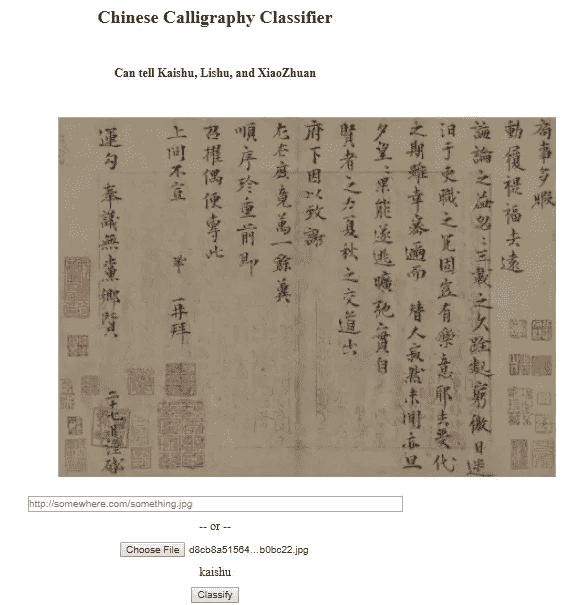 Chinese Calligraphy Classifier
Can tell Kaishu, Lishu, and XiaoZhuan
局事多暇
動履禔福去遠
誨論之益忽忽三載之久跧處窮徼日迷
汩于吏職之冗固豈有樂意耶去受代
之期雖幸密邇而 替人寂然未聞亦旦
夕望望果能遂逃曠弛實自
賢者之力夏秋之交道出
府下因以致謝
左右庶竟萬一餘冀
順序珍重前即
召擢偶便專此
上問不宣 鞏 再拜
運勾 奉議無黨鄉賢 二十七日謹啟
http://somewhere.com/something.jpg
-- or --
Choose File d8cb8a51564...b0bc22.jpg
kaishu
Classify